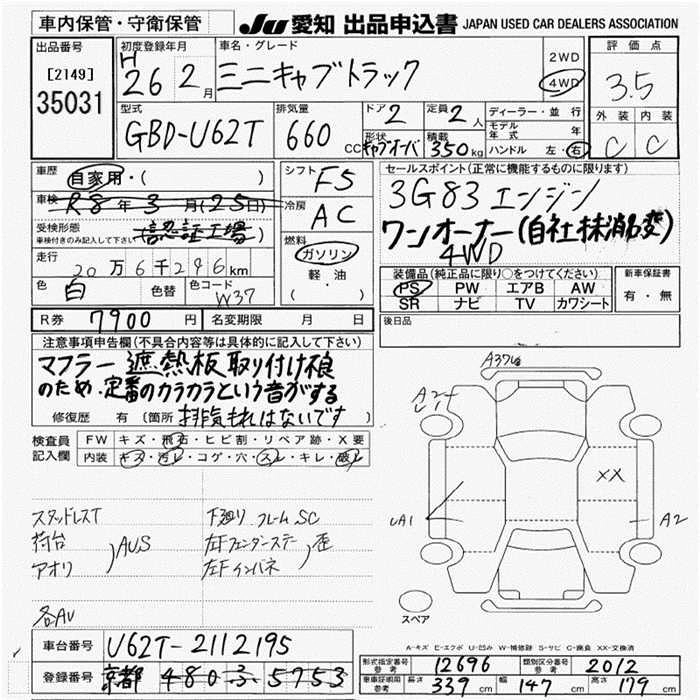 車内保管・守衛保管
JU 愛知 出品申込書 JAPAN USED CAR DEALERS ASSOCIATION
出品番号
[2149]
35031
初度登録年月
H
26 2月
車名・グレード
ミニキャブトラック
2WD
4WD
評価点
3.5
外装 内装
C C
型式
GBD-U62T
排気量
660 CC
ドア 2
定員 2人
形状 キャブオーバ
積載 350kg
ディーラー・並行
モデル年式 年
ハンドル 左・右
車歴
自家用・( )
車検
R8年3月(25日)
受検形態
車検付きのみ記入して下さい
認証工場
走行
20万6千246km
色 白 色替 色コード W37
シフト F5
冷房 AC
燃料
ガソリン
軽油
( )
セールスポイント(正常に機能するものに限ります)
3G83 エンジン
ワンオーナー(自社抹消変)
4WD
装備品(純正品に限り○をつけてください)
PS PW エアB AW
SR ナビ TV カワシート
新車保証書
有・無
R券 7900円 名変期限 月 日
後日品
注意事項申告欄(不具合内容等は具体的に記入して下さい)
マフラー遮熱板取り付け
のため、定番のカラカラという音がする
修復歴 有(箇所 排気もれはないです )
検査員記入欄
FW キズ・飛石・ヒビ割・リペア跡・X要
内装 キズ・汚レ・コゲ・穴・スレ・キレ・破レ
スタッドレスT
荷台
アオリ
AUS
各AU
下廻り フレームSC
左Fフェンダーステー
左Fインパネ
歪
A2
UA1
XX
A2
スペア
A-キズ E-エクボ U-凹み W-補修跡 S-サビ C-腐食 XX-交換済
車台番号 U62T-2112195
登録番号 京都 480 ふ 5753
型式指定番号 参考 12696 類別区分番号 参考 2012
車庫証明用 参考 長さ 339cm 幅 147cm 高さ 179cm